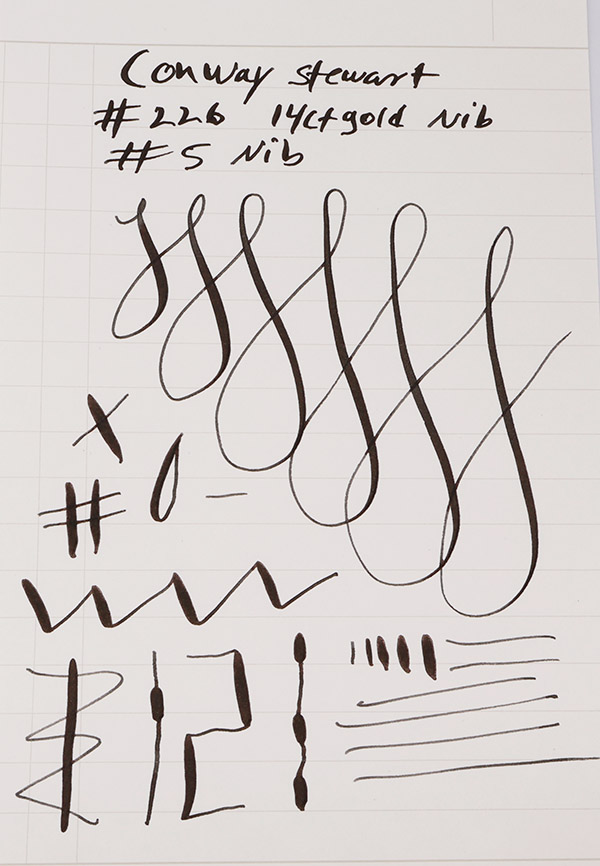 Conway Stewart
#226 14ct gold Nib
#5 Nib